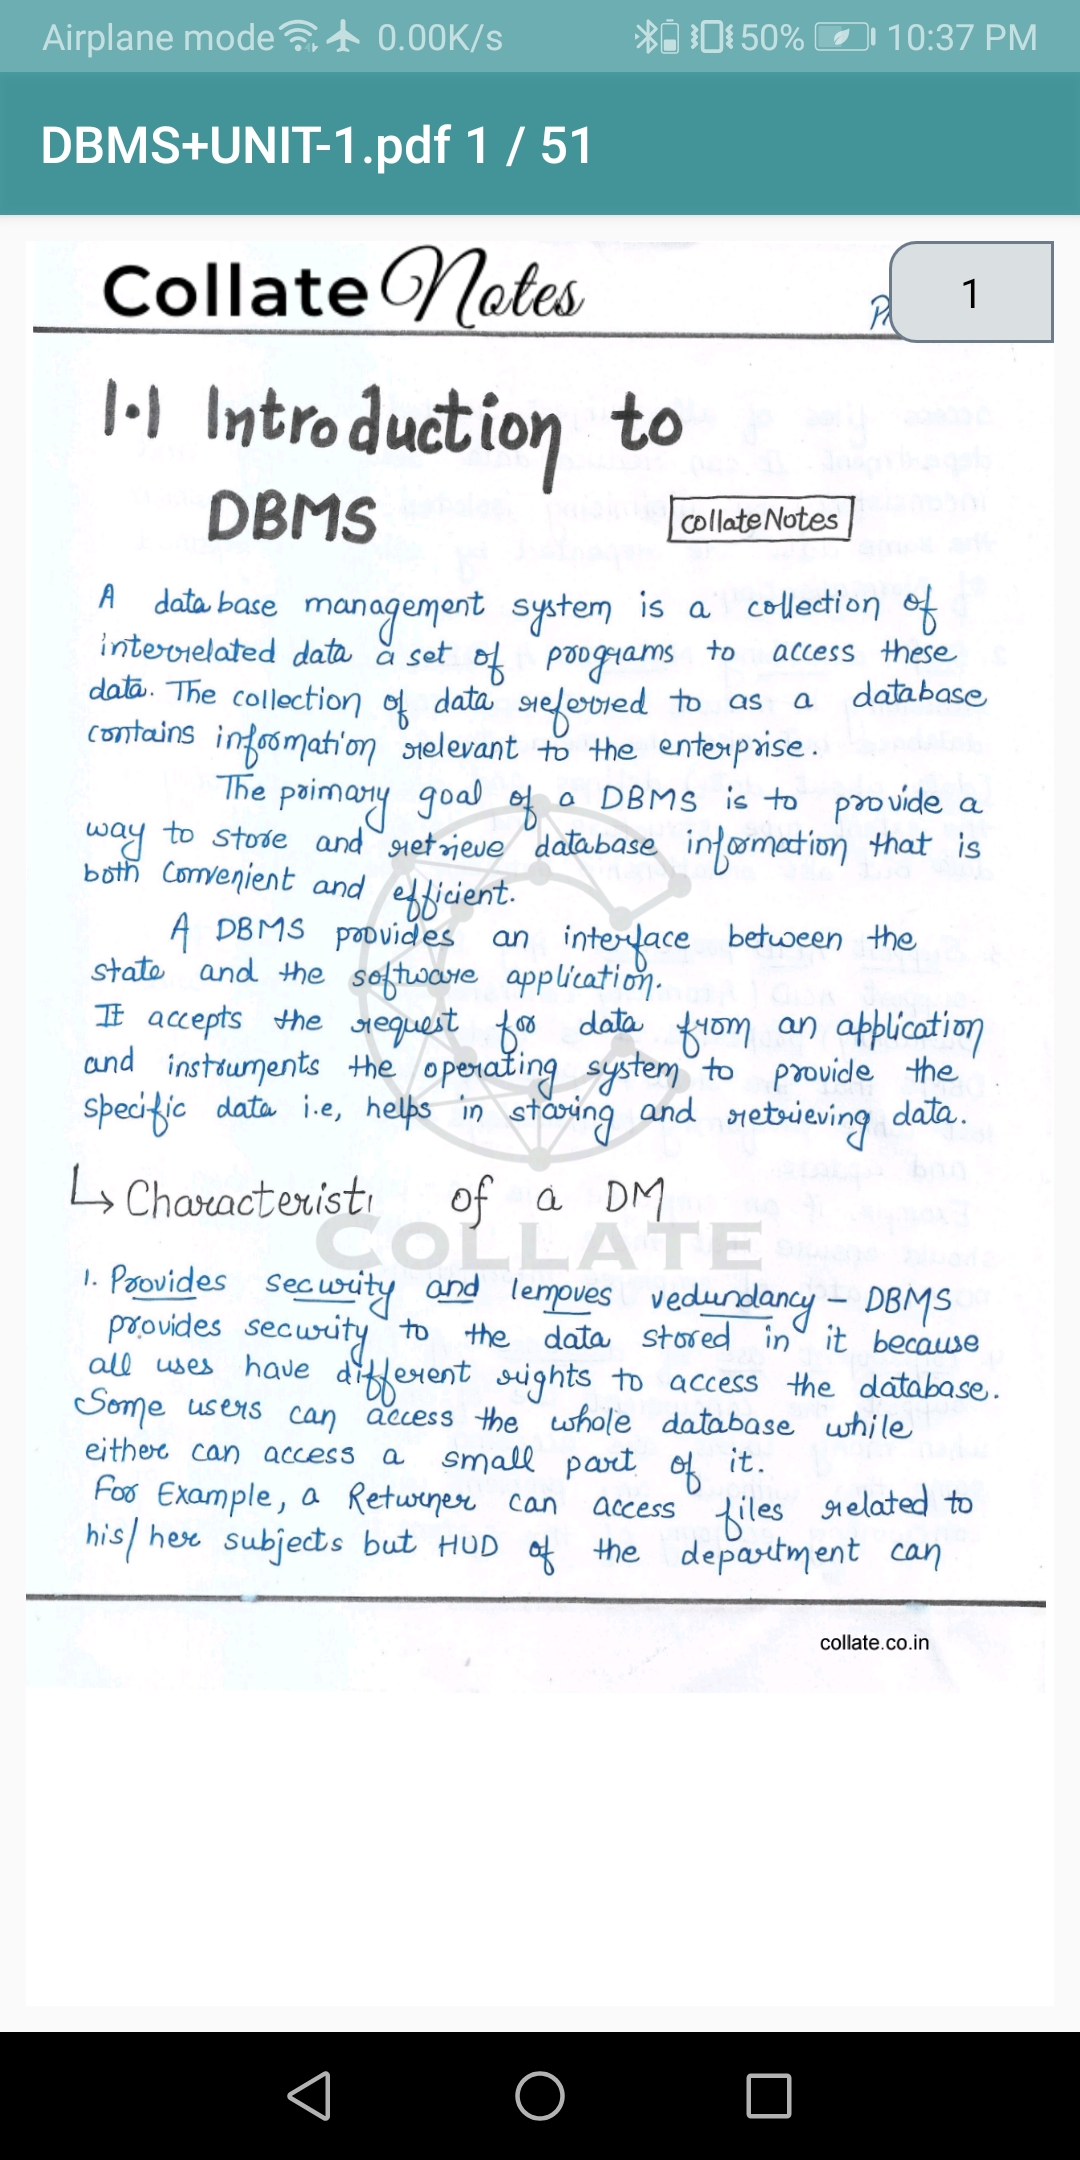 Airplane mode 0.00K/s 50% 10:37 PM
DBMS+UNIT-1.pdf 1 / 51
Collate Notes
1
1.1 Introduction to
DBMS
Collate Notes
A database management system is a collection of
interrelated data a set of programs to access these
data. The collection of data referred to as a database
contains information relevant to the enterprise.
The primary goal of a DBMS is to provide a
way to store and retrieve database information that is
both convenient and efficient.
A DBMS provides an interface between the
state and the software application.
It accepts the request for data from an application
and instruments the operating system to provide the
specific data i.e, helps in storing and retrieving data.
↳ Characteristi of a DM
COLLATE
1. Provides security and lemoves vedundancy – DBMS
provides security to the data stored in it because
all uses have different rights to access the database.
Some users can access the whole database while
either can access a small part of it.
For Example, a Returner can access files related to
his/her subjects but HUD of the department can
collate.co.in